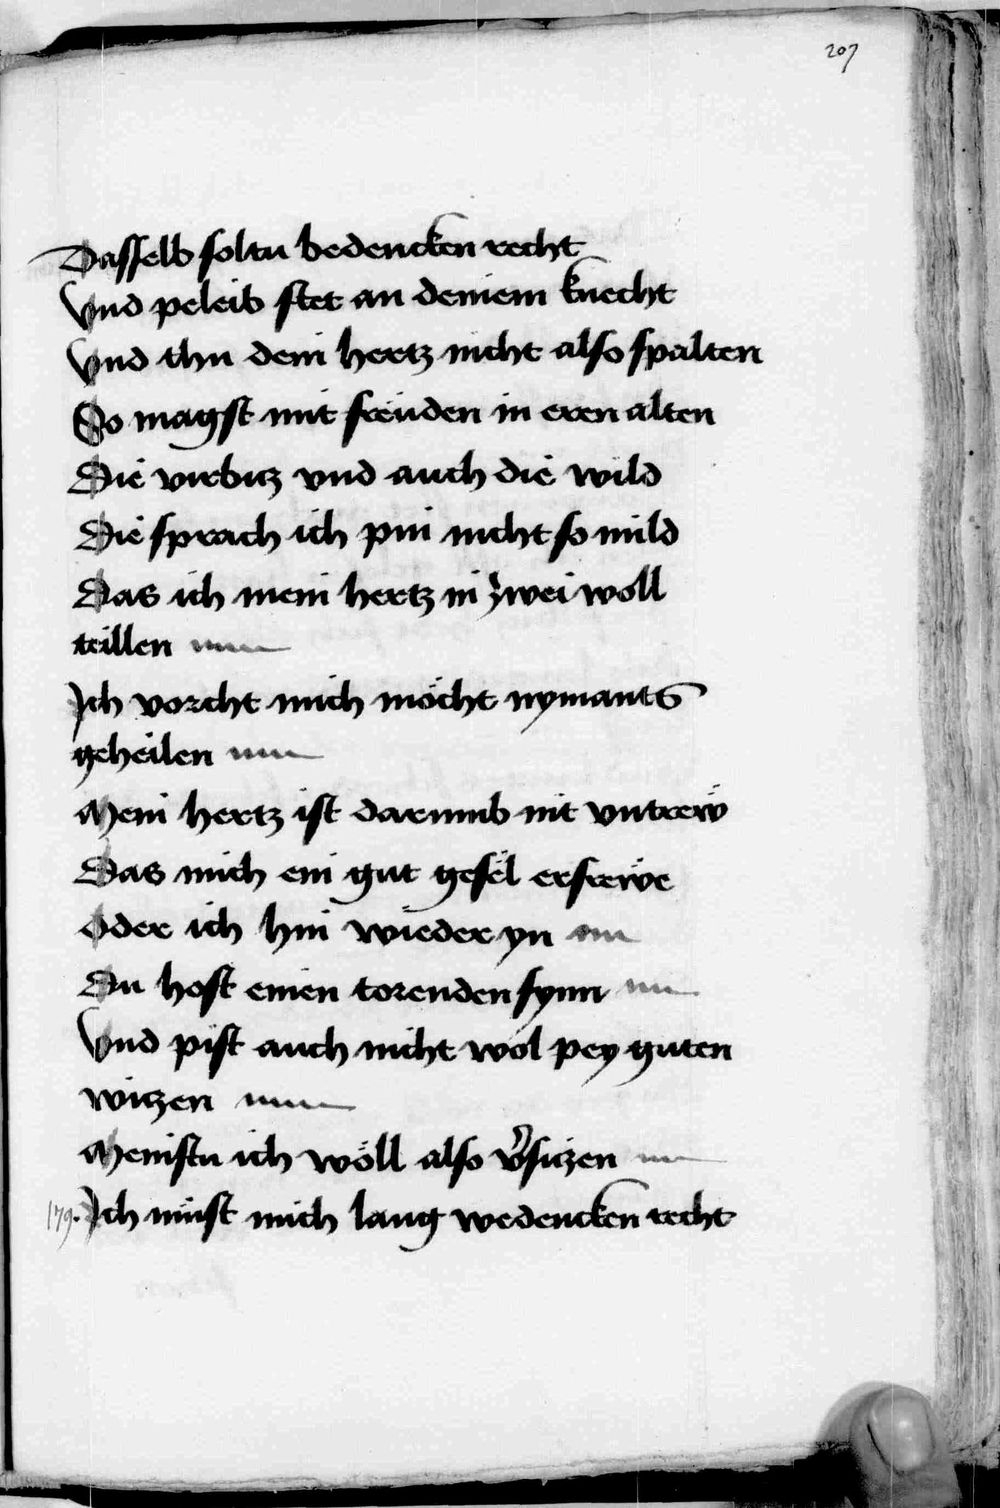 207
Dasselb soltu bedencken recht
Vnd peleib stet an deinem knecht
Vnd thu dein hertz nicht also spalten
So magst mit freüden in eren alten
Die virbitz vnd auch die wild
Die sprach ich pin nicht so mild
Das ich mein hertz in zwei woll
teillen
Ich vorcht mich möcht nymants
geheilen
Mein hertz ist darumb nit vntrew
Das mich ein gut gesel erfrewe
Oder ich hin wieder yn
Du host einen torenden synn
Vnd pist auch nicht wol pey guten
witzen
Meinstu ich wöll also v̄sitzen
179. Ich müst mich lang wedencken recht